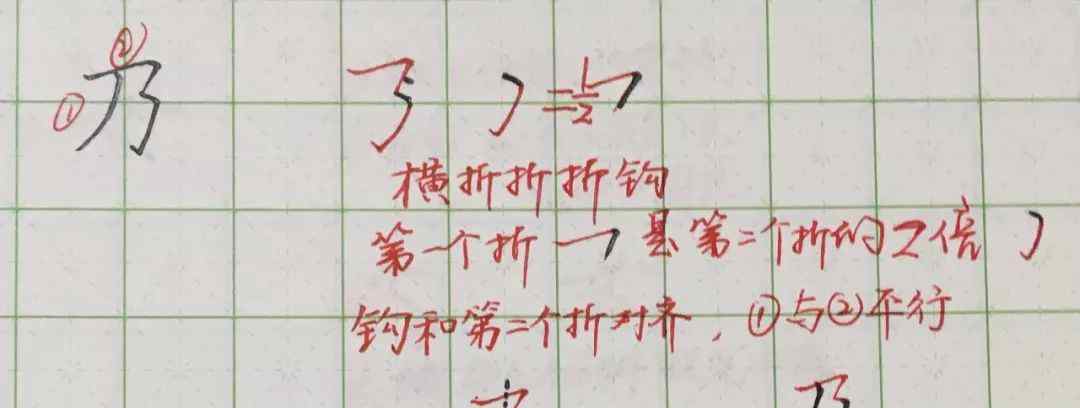 ① ② 乃 ㄋ ㇆ = 1/2 ㇇
横折折折钩
第一个折 ㇇ 是第二个折的2倍 ㇆
钩和第二个折对齐，①与②平行